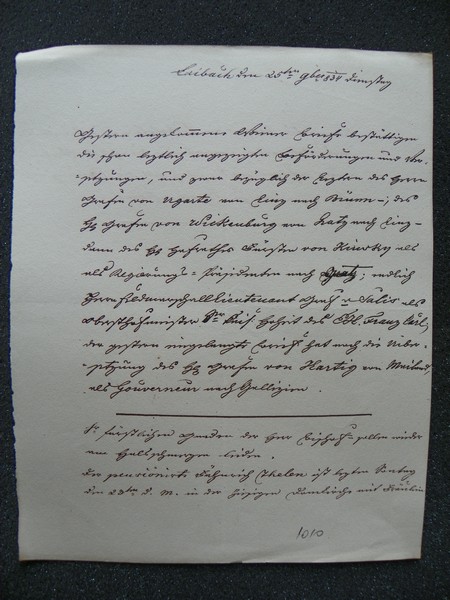 Laibach den 25ten 9ber 834 Dienstag
Gestern angekommene Wiener Briefe bestättigen
die schon letztlich angezeigten Beförderungen und Ver-
setzungen, und zwar bezüglich der Letzten des Herrn
Grafen von Ugarte von Linz nach Brünn-, des
H Grafen von Wickenburg von Gratz nach Linz-
dann des H Hofrathes Fürsten von als
als Regierungs-Präsidenten nach Gratz; endlich
Herrn Feldmarschallieutenant Graf v Salis als
Obersthofmeister Sr Kais Hoheit des Franz Carl,
der gestern eingelangte Brief hat noch die Über-
setzung des H Grafen von Hartig von Mailand,
als Gouverneur nach Gallizien.
Sr fürstlichen Gnaden der Herr Bischof sollen wieder
am Halsschmerzen leiden.
Der pensionirte Fähnrich Thelen ist letzten Sontag
den 23ten d. M. in der hiesigen Domkirche mit Fräulein
1010